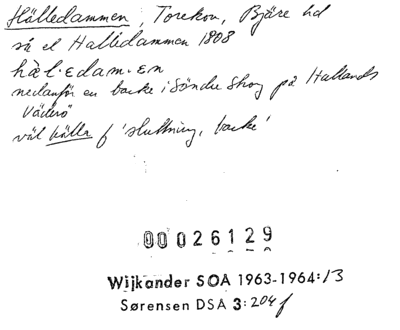 Hälledammen, Torekov, Bjäre hd
så el Halledammen 1808
hàl·edam·en
nedanför en backe i Söndre Skog på Hallands
Väderö
väl hälla f 'sluttning, backe'
00026129
Wijkander SOA 1963-1964:13
Sørensen DSA 3:204f